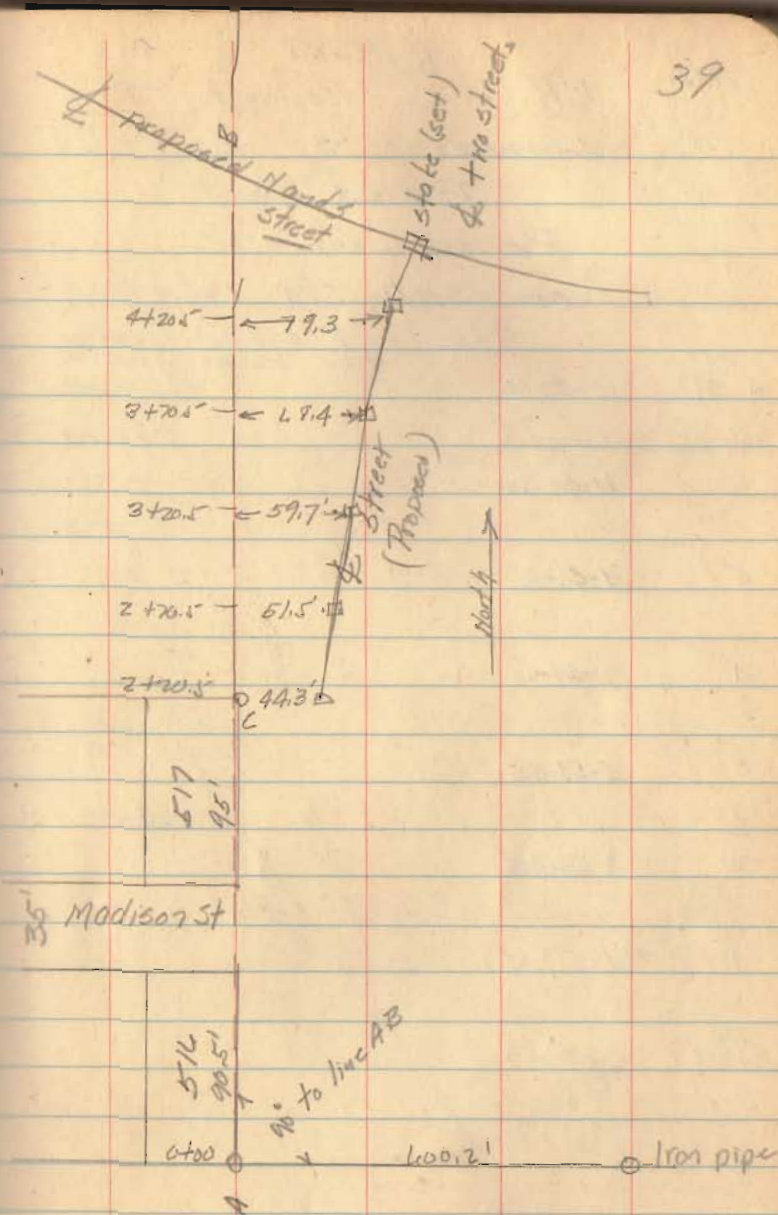 39
℄ Proposed Hands
Street
B
stake (set)
℄ two streets
4+20.5 79.3
3+70.5 68.4
3+20.5 59.7'
2+70.5 51.5'
2+20.5 44.3'
C
℄ Street
(Proposed)
North
517
95'
35' Madison St
516
90.5'
90° to line AB
0+00 600.2' Iron pipe
A